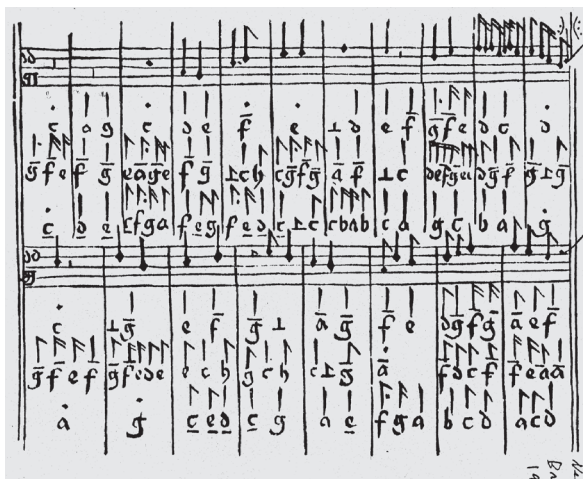 dd
gg
c a g c d e f e ⊥ d e f g f e d c d
g f e f g e a g e f g ⊥ c h c g f g a f ⊥ c d e f g e c d g f g ⊥ g
c d e c f g a f e g f e d c ⊥ c c b a b c a g c b a g
dd
gg
c ⊥ g e f g ⊥ a g f e d g f g a e f
g f e f g f e d e e c h g c h c ⊥ g a f d c f f e a a
a g c e d c g a e f g a b c d a c d